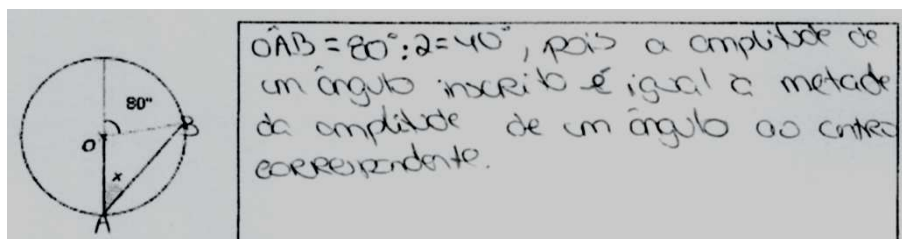 80°
O
B
x
A
OÂB = 80° : 2 = 40°, pois a amplitude de
um ângulo inscrito é igual à metade
da amplitude de um ângulo ao centro
correspondente.